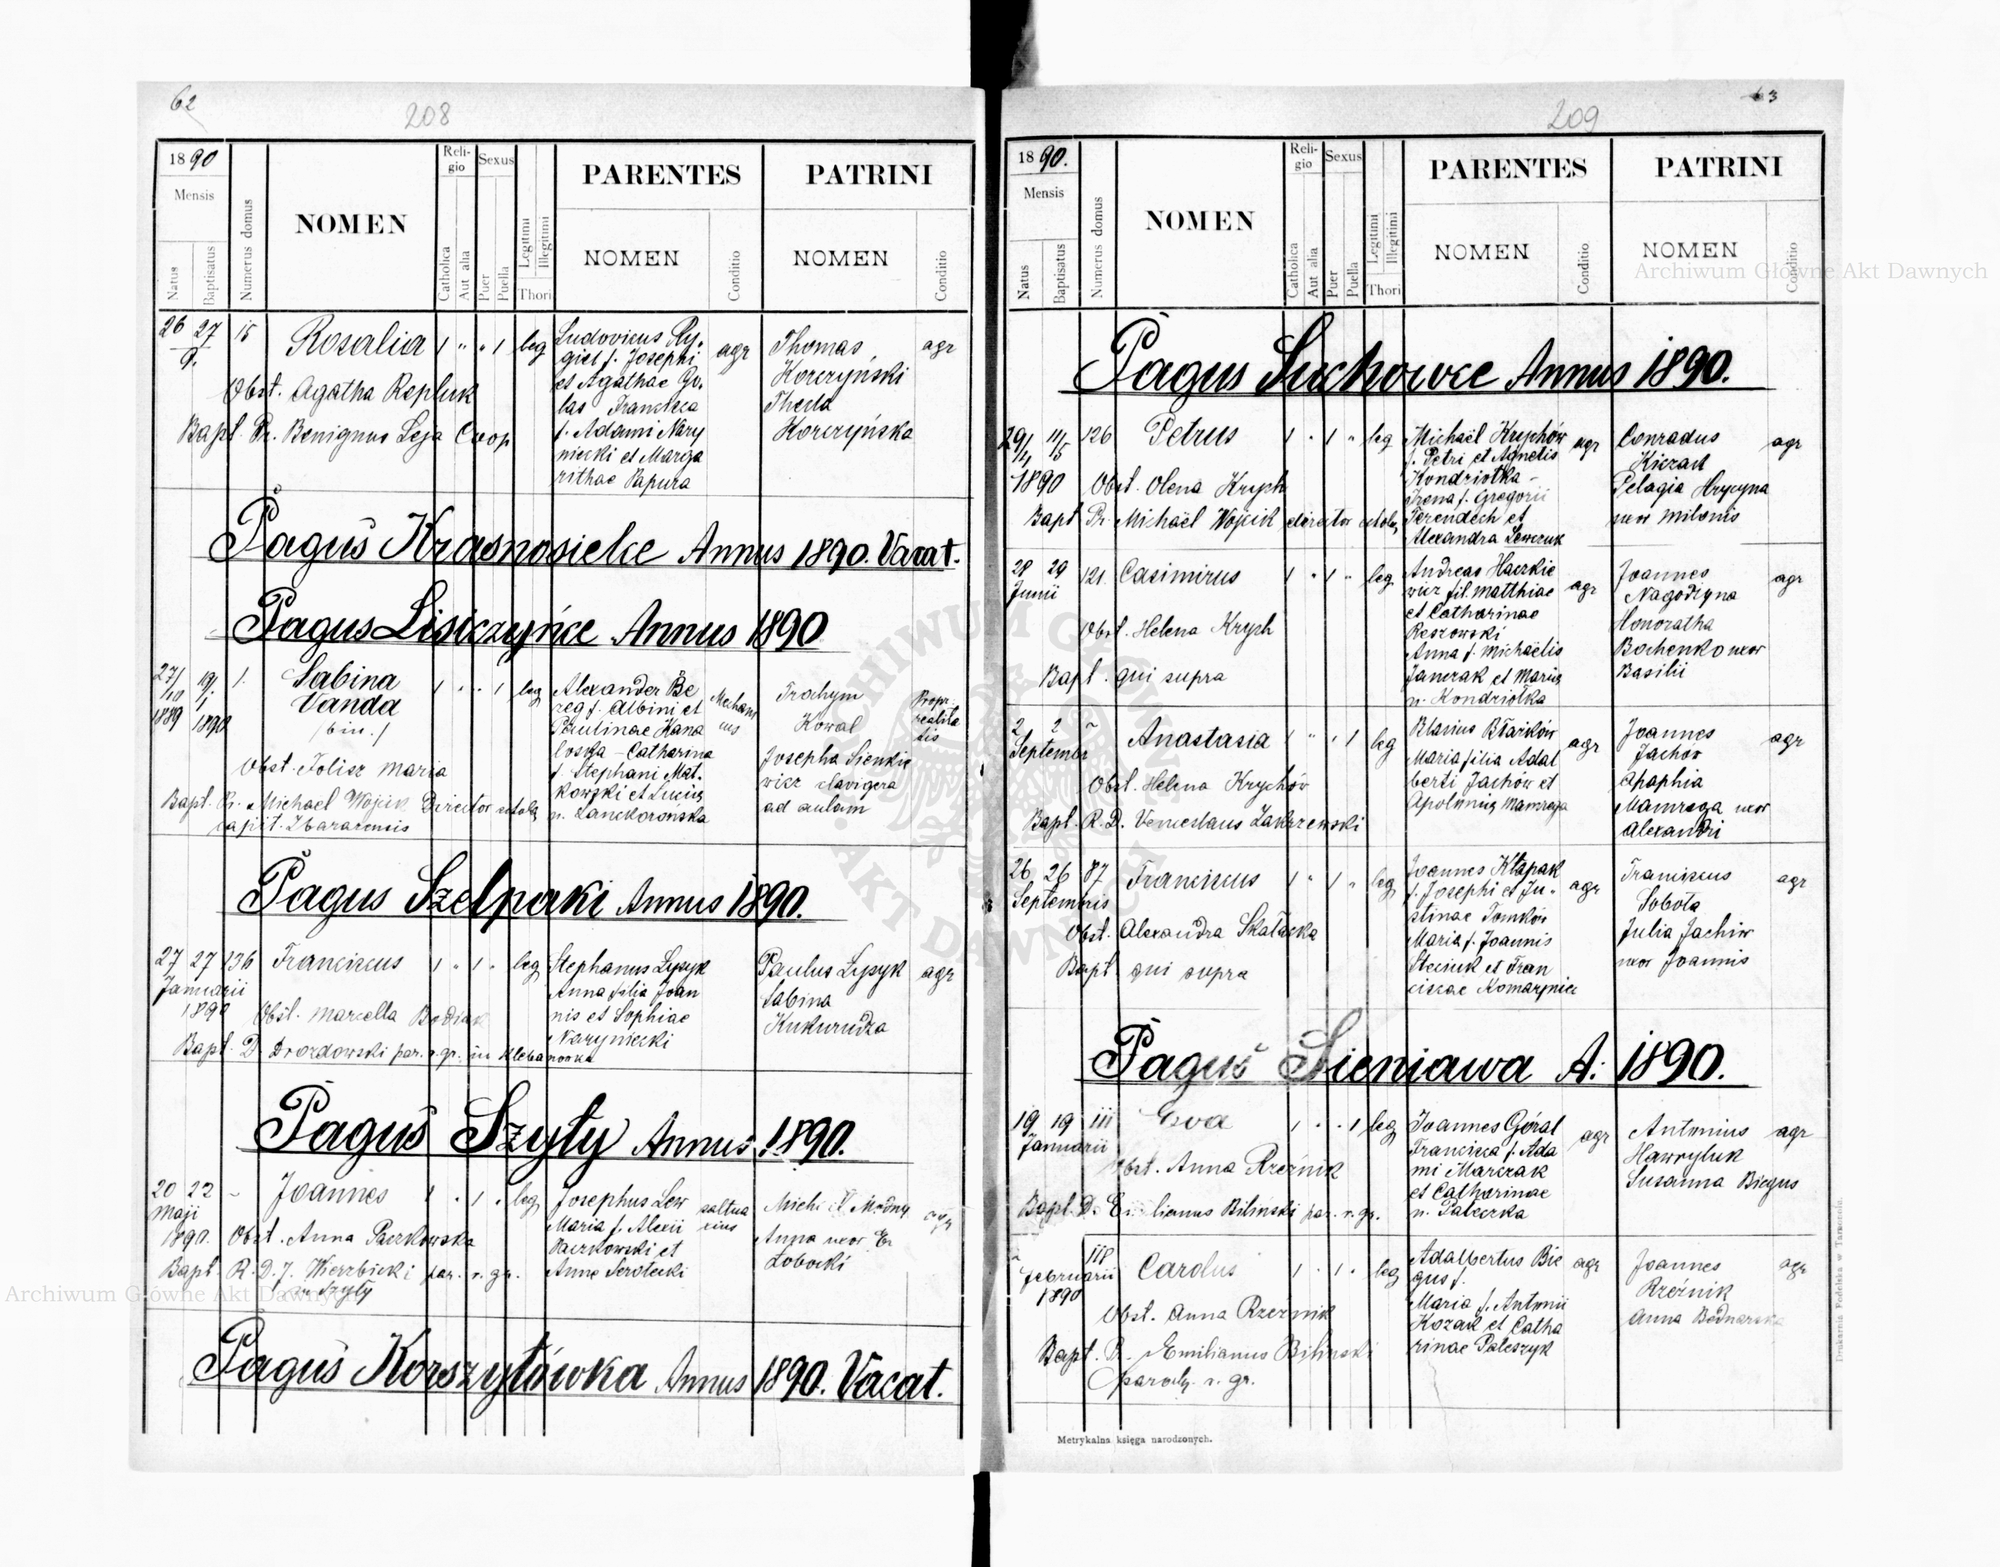 62
208
1890
Mensis
Natus
Baptisatus
Numerus domus
NOMEN
Religio
Catholica
Aut alia
Sexus
Puer
Puella
Legitimi
Illegitimi
Thori
PARENTES
NOMEN
Conditio
PATRINI
NOMEN
Conditio
26 27 15 Rosalia 1 " " 1 leg
9.
Obst. Agatha Repluk
Bapt. Pr. Benignus Leja Coop
Ludovicus Ry-
giel f. Josephi
et Agathae Go-
las Francisca
f. Adami Nary
niecki et Marga
rithae Papura
agr
Thomas
Korczyński
Thecla
Korczyńska
agr
Pagus Krasnosielce Annus 1890. Vacat.
Pagus Lisiczyńce Annus 1890
27/10 1889 19/1 1890 1. Sabina 1 " " 1 leg
Vanda
/bin./
Obst. Tolisz Maria
Bapt. Pr. Michael Wojcik Director schola
capit. Zbararensis
Alexander Be
reg f. Albini et
Paulinae Kana
- Catharina
f. Stephani Mat-
kowski et Lucia
n. Lanckorońska
Mechani
cus
Kowal
Josepha Sienkie
wicz clavigera
ad aulam
Propr.
realita
tis
Pagus Szelpaki Annus 1890.
27 27 136 Franciscus 1 " 1 " leg
Januarii
1890 Obst. Marcella
Bapt. D. Drozdowski par. r. gr. in Klebanowka
Stephanus Lysyk
Anna filia Joan
nis et Sophiae
Naryniecki
Paulus Lysyk
Sabina
Kukurudza
agr
Pagus Szyly Annus 1890.
20 22 - Joannes 1 " 1 " leg
Maji
1890. Obst. Anna Paczkowska
Bapt. R. D. J. Wierzbicki par. r. gr.
in Szyly
Josephus Lew
Maria f. Alexii
Paczkowski et
Anne Serotecki
saltua
rius
Anna uxor
Łobocki
agr
Pagus Korszyłówka Annus 1890. Vacat.
63
209
1890.
Mensis
Natus
Baptisatus
Numerus domus
NOMEN
Religio
Catholica
Aut alia
Sexus
Puer
Puella
Legitimi
Illegitimi
Thori
PARENTES
NOMEN
Conditio
PATRINI
NOMEN
Conditio
Pagus Suchowce Annus 1890.
29/4 11/5 126 Petrus 1 " 1 " leg
1890 Obst. Olena Krych
Bapt. Pr. Michaël Wojcik director schola
Michaël Krychów
f. Petri et Agnetis
Kondriotka -
Irena f. Gregorii
Terendech et
Alexandra Lewczuk
agr
Conradus
Kiczak
Pelagia Hrycyna
uxor Milonis
agr
28 29 121 Casimirus 1 " 1 " leg
Junii
Obst. Helena Krych
Bapt. qui supra
Andreas Haczkie
wicz fil. Matthiae
et Catharinae
Reszowski
Anna f. Michaëlis
Janczak et Maria
n. Kondriotka
agr
Joannes
Nagodzyna
Honoratha
Bochenko uxor
Basilii
agr
2 2 Anastasia 1 " " 1 leg
Septembr
Obst. Helena Krychów
Bapt. R. D. Venceslaus Zakrzewski
Blasius Btaszków
Maria filia Adal
berti Jachów et
Apolonia Mamrega
agr
Joannes
Jachów
Apaphia
Mamrega uxor
Alexandri
agr
26 26 87 Franciscus 1 " 1 " leg
Septembris
Obst. Alexandra Skalacka
Bapt. qui supra
Joannes Kłapak
f. Josephi et Ju-
stinae Tomków
Maria f. Joannis
Steciuk et Fran
ciscae Komarynicz
agr
Franciscus
Sobota
Julia Jachiw
uxor Joannis
agr
Pagus Sieniawa A. 1890.
19 19 111 Eva 1 " " 1 leg
Januarii
Obst. Anna Rzeźnik
Bapt. D. Biliński par. r. gr.
Joannes Góral
Francisca f. Ada
mi Marczak
et Catharinae
n. Paleczka
agr
Antonius
Hawryluk
Susanna Biegus
agr
118 Carolus 1 " 1 " leg
Februarii
1890
Obst. Anna Rzeznik
Bapt. Pr. Emilianus Biliński
paroch. r. gr.
Adalbertus Bie
gus f.
Maria f. Antonii
Kozak et Catha
rinae Paleszyk
agr
Joannes
Rzeźnik
Anna Bodnarska
agr
Metrykalna księga narodzonych.
Drukarnia Fedelska w Tarnopolu.
Archiwum Główne Akt Dawnych
Archiwum Główne Akt Dawnych
ARCHIWUM GŁÓWNE
AKT DAWNYCH